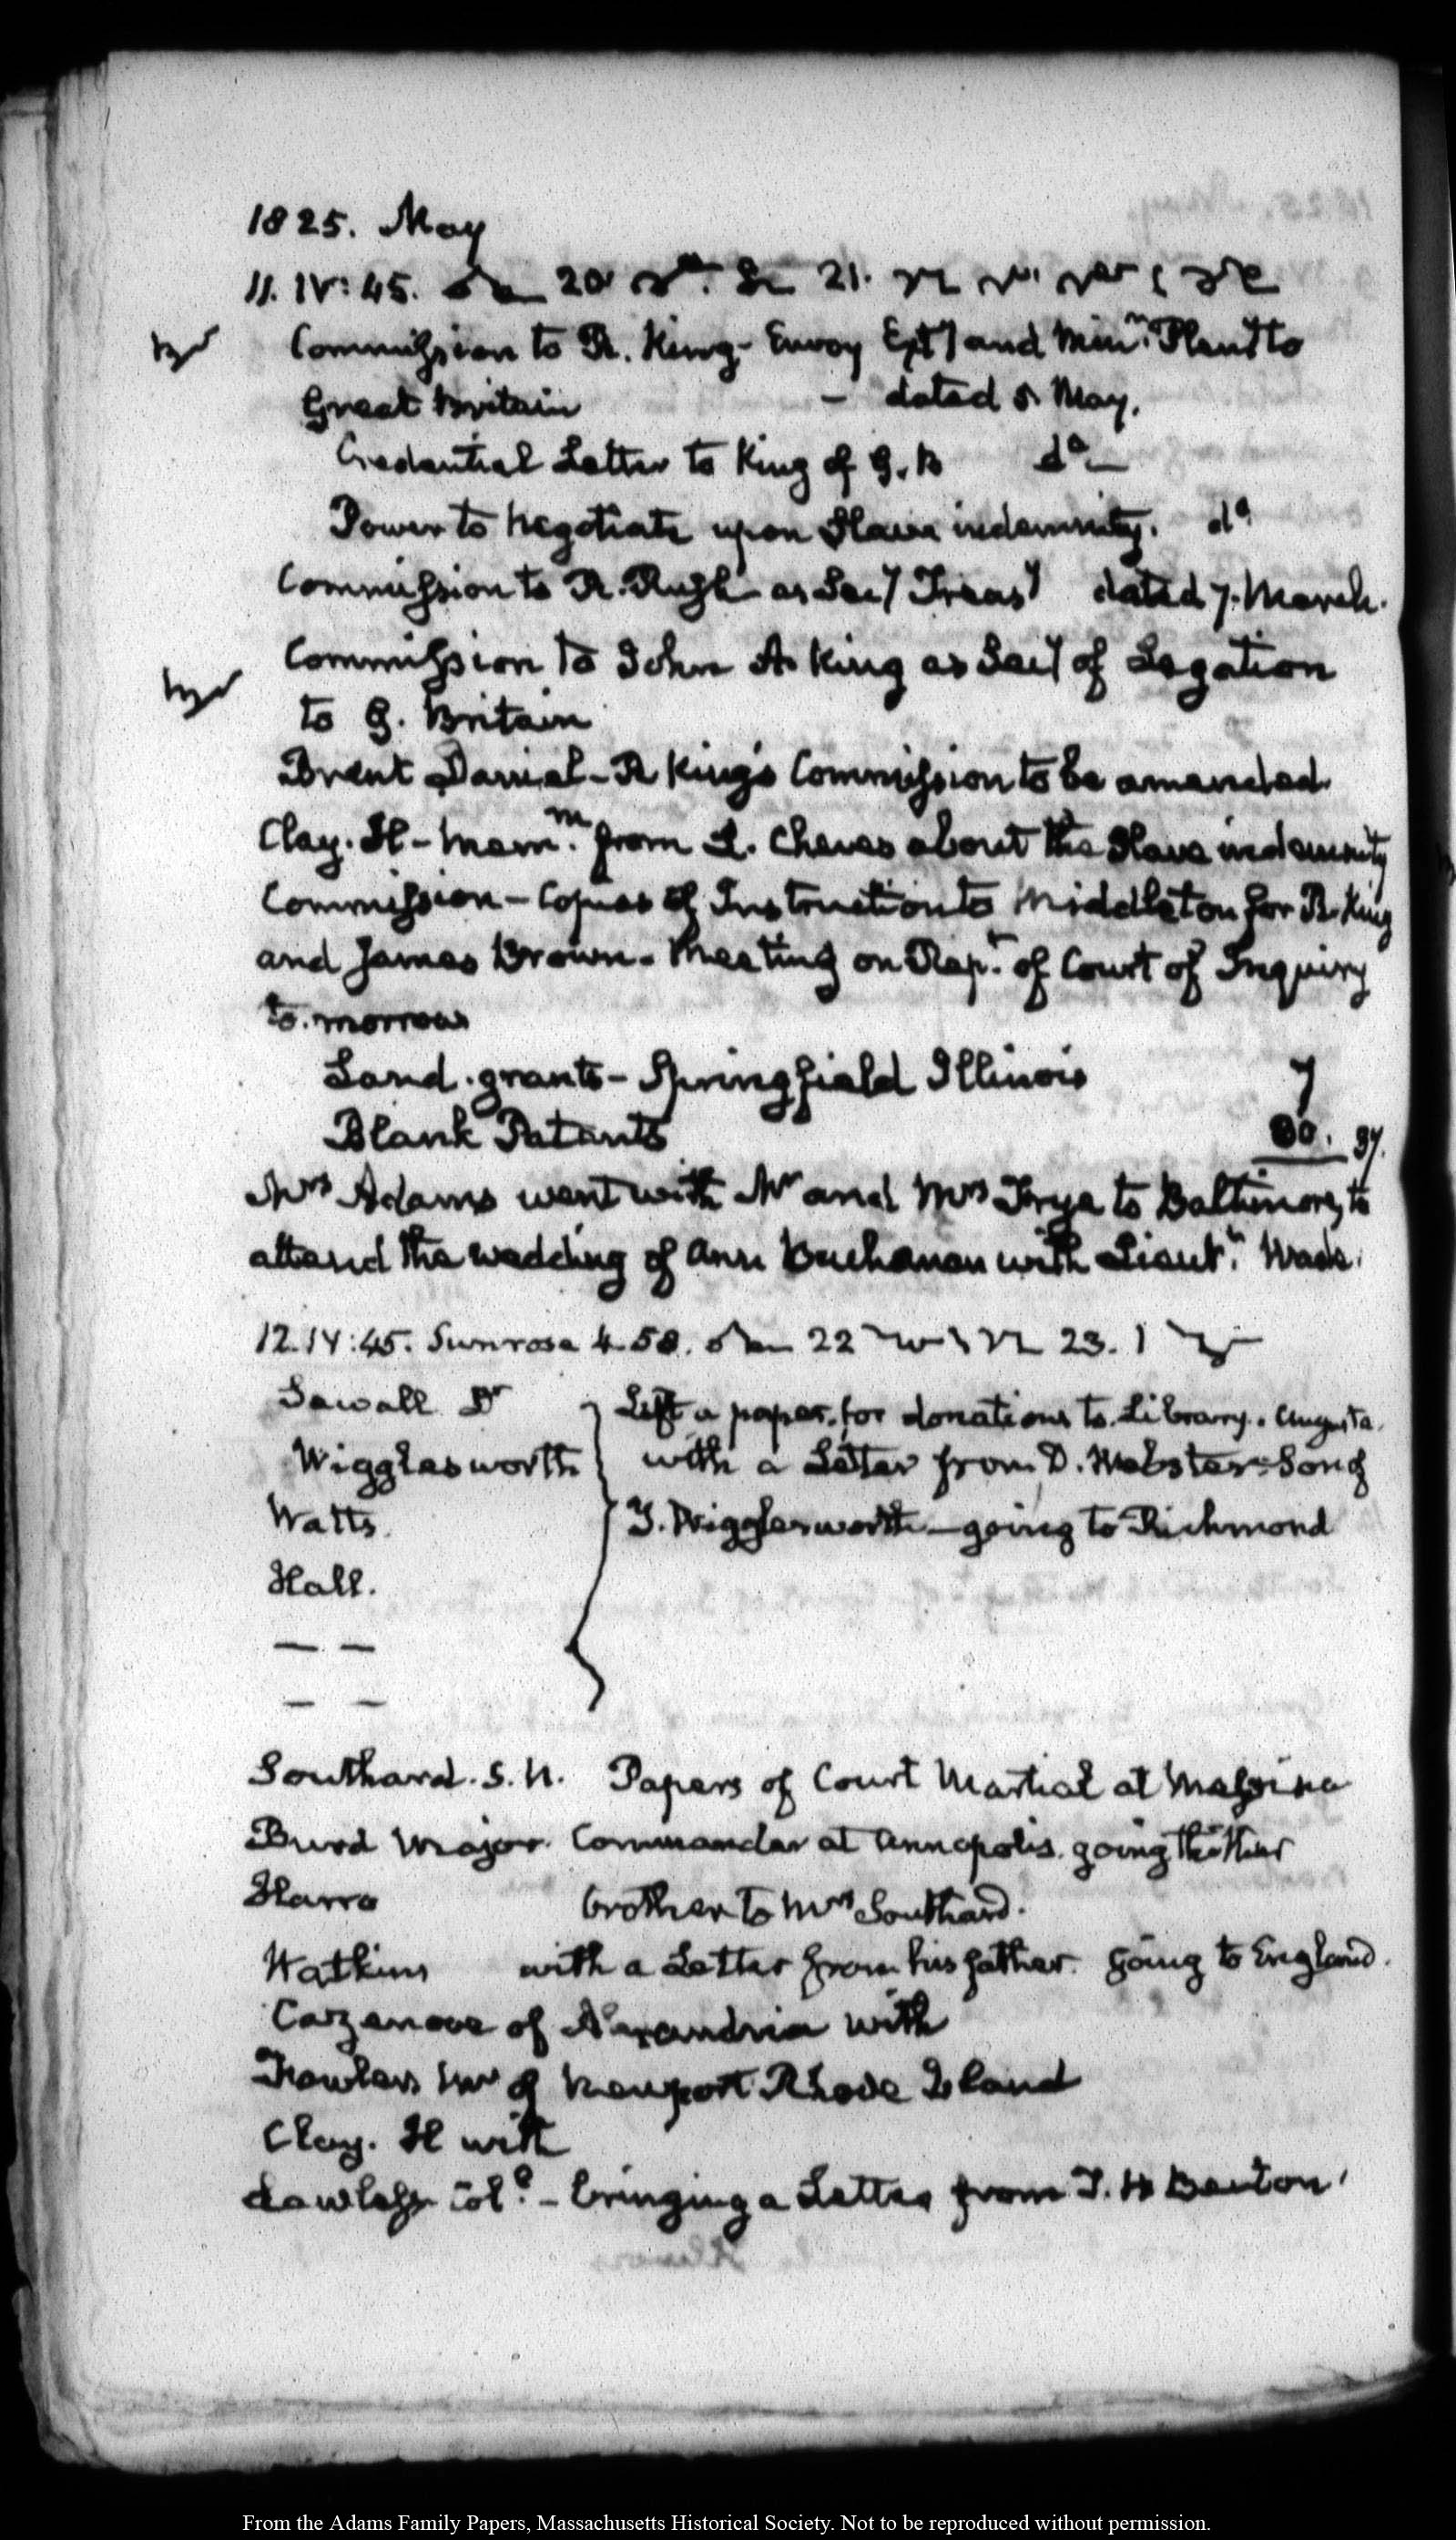 1825. May
11. IV: 45. 20 21.
Commission to R. King- Envoy Exty and Minr. Plenty to
Great Britain — dated 5 May.
Credential Letter to King of G. B do—
Power to negotiate upon Slave indemnity. do
Commission to R. Rush as Secy Treasy dated 7. March.
Commission to John A. King as Secy of Legation
to G. Britain
Brent Daniel- R King's Commission to be amended
Clay. H- Memm. from L. Cheves about the Slave indemnity
Commission- Copies of Instruction to Middleton for R. King
and James Brown. Meeting on Rept. of Court of Inquiry
to-morrow
Land.grants- Springfield Illinois 7
Blank Patents 30. 37.
Mrs Adams went with Mr and Mrs Frye to Baltimore, to
attend the wedding of Ann Buchanan with Lieutt. Wade.
12. IV: 45. Sunrose 4-58. 22 23.
Sewall Dr Left a paper for donations to Library. Augusta.
Wigglesworth with a Letter from D. Webster- Son of
Watts. T. Wigglesworth- going to Richmond
Hall.
— —
— —
Southard. S. L. Papers of Court Martial at
Burd Major. Commander at Annapolis. going thither
brother to Mrs Southard.
Watkins with a Letter from his father. going to England.
Cazenove of Alexandria with
Fowler Mr of Newport Rhode Island
Clay. H with
Lawless Colo. - bringing a Letter from T. H Benton
From the Adams Family Papers, Massachusetts Historical Society. Not to be reproduced without permission.